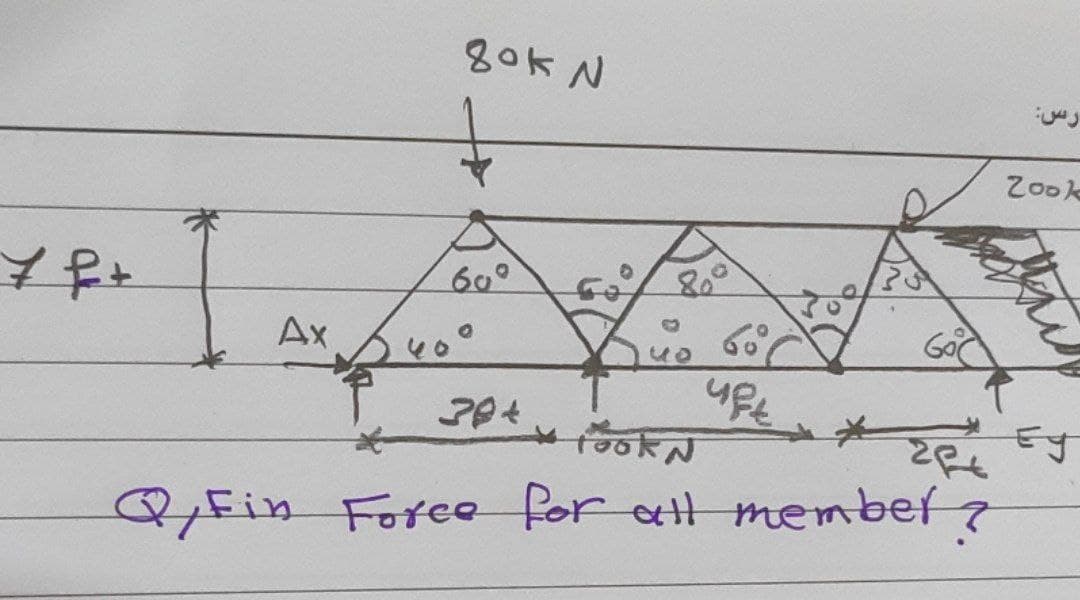 80kN
رس:
200k
D
7 ft
60°
50°
80°
30°
35
Ax
40°
40°
60°
60°
3ft
4ft
100kN
2ft
Ey
Q, Fin Force for all member?